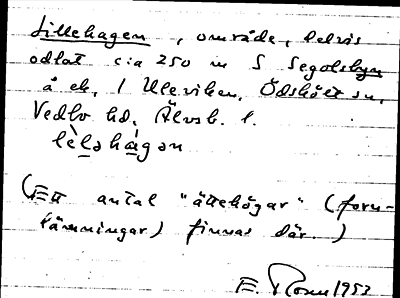 Lillehagen, område, delvis
odlat c:a 250 m S Segolsbyn
å ek. / Uleviken, Ödskölt sn,
Vedbo hd, Älvsb. l.
lèləhàgən
(Ett antal "ättehögar" (forn-
lämningar) finnas där.)
E. Rosen 1953